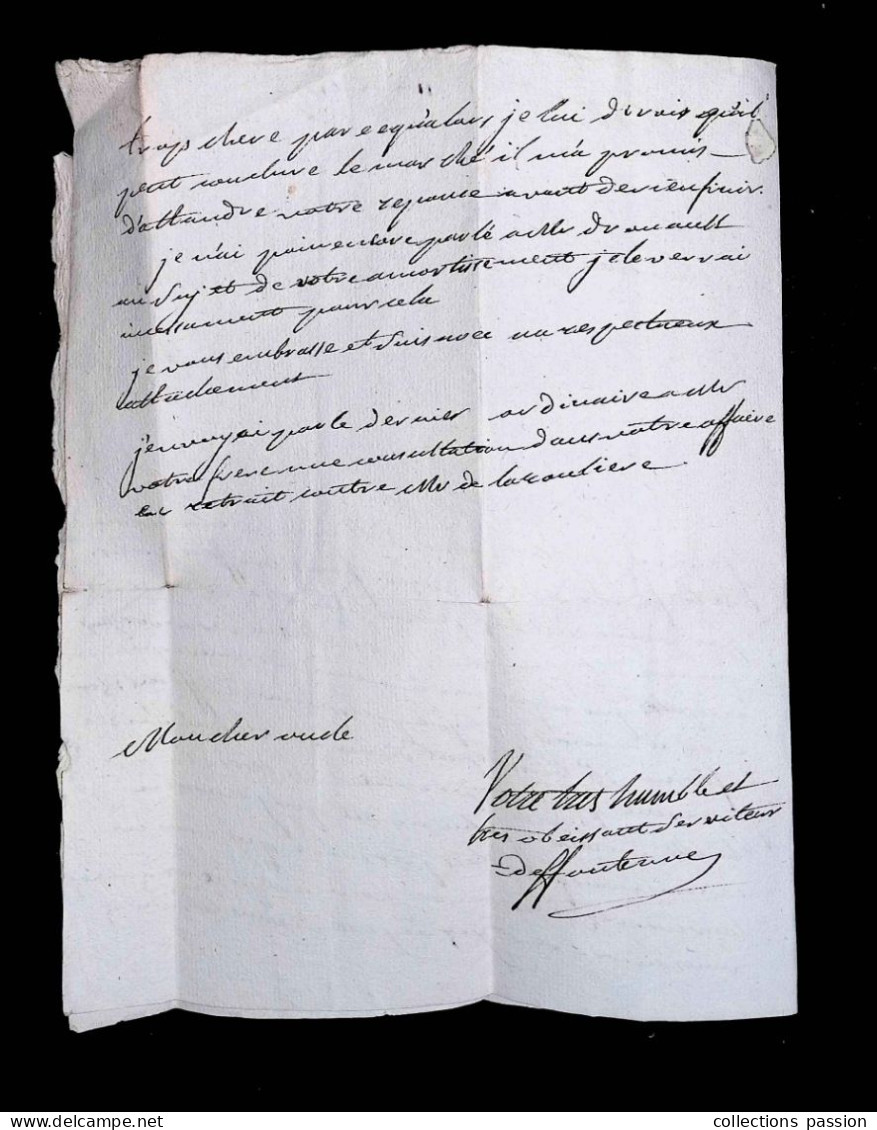 trop chere parcequ'alors je lui dirois qu'il
peut conclure le marché il m'a promis
d'attandre votre reponce avant de rien finir.
je n'ai point encore parlé a Mr drouault
au sujet de votre amortissement je le verrai
incessament pour cela
je vous embrasse et suis avec un respectueux
attachement
j'envoyai par le dernier ordinaire a Mr
votre frere une consultation dans votre affaire
en retrait contre Mr de
Mon cher oncle
Votre tres humble et
tres obeissant serviteur
collections passion